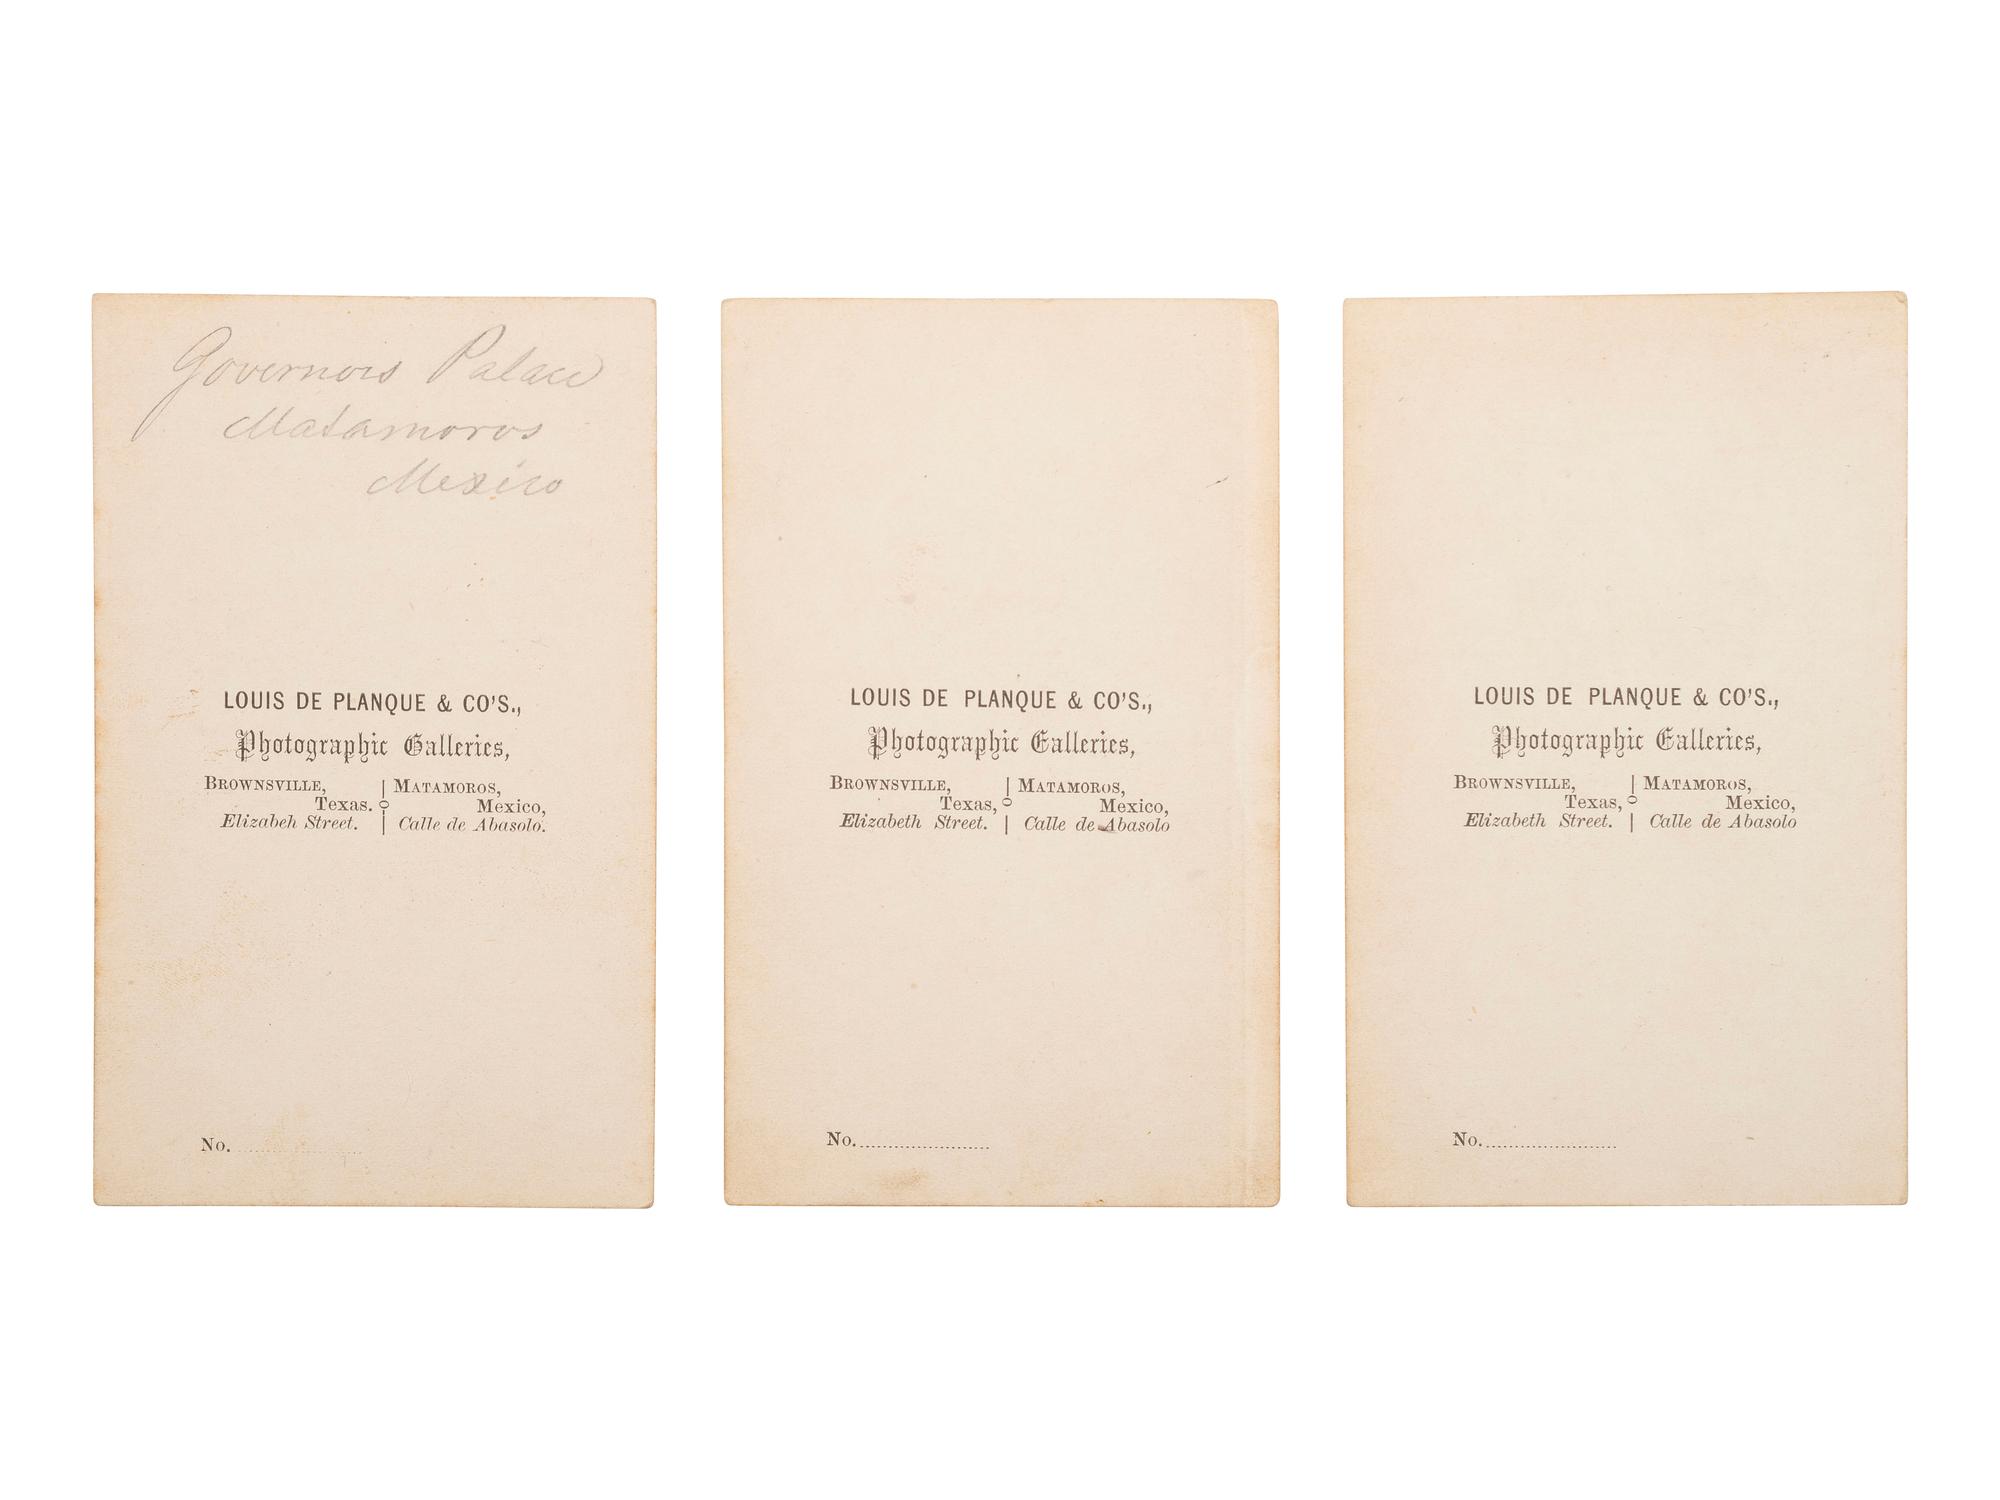 Governors Palace
Matamoros
Mexico
LOUIS DE PLANQUE & CO'S.,
Photographic Galleries,
BROWNSVILLE, | MATAMOROS,
Texas. Mexico,
Elizabeh Street. | Calle de Abasolo.
No.
LOUIS DE PLANQUE & CO'S.,
Photographic Galleries,
BROWNSVILLE, | MATAMOROS,
Texas, Mexico,
Elizabeth Street. | Calle de Abasolo
No.
LOUIS DE PLANQUE & CO'S.,
Photographic Galleries,
BROWNSVILLE, | MATAMOROS,
Texas, Mexico,
Elizabeth Street. | Calle de Abasolo
No.